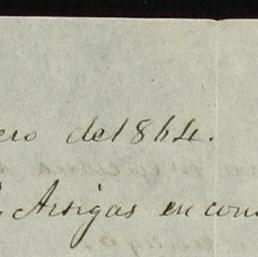 ero del 864.
Artigas en con